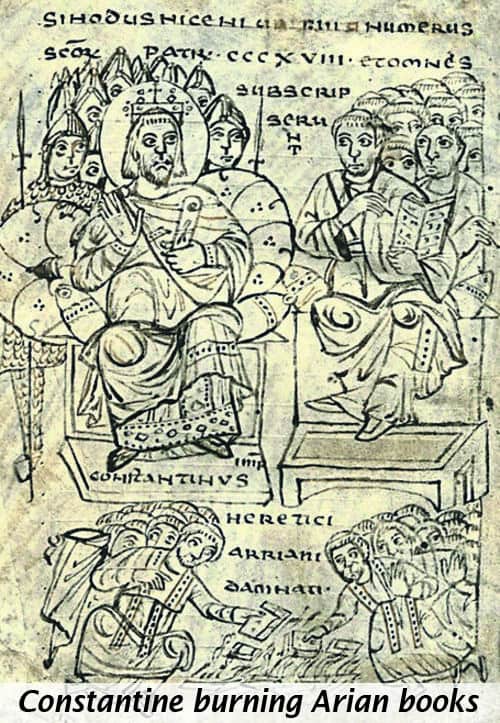 SINODUS NICENI U NUMERUS
SCŌR PATRŪ · CCCXVIII · ET OMNES
SUBSCRIP
SERU
NT
CONSTANTINUS IMP
HERETICI
ARRIANI
DAMNATI ·
Constantine burning Arian books